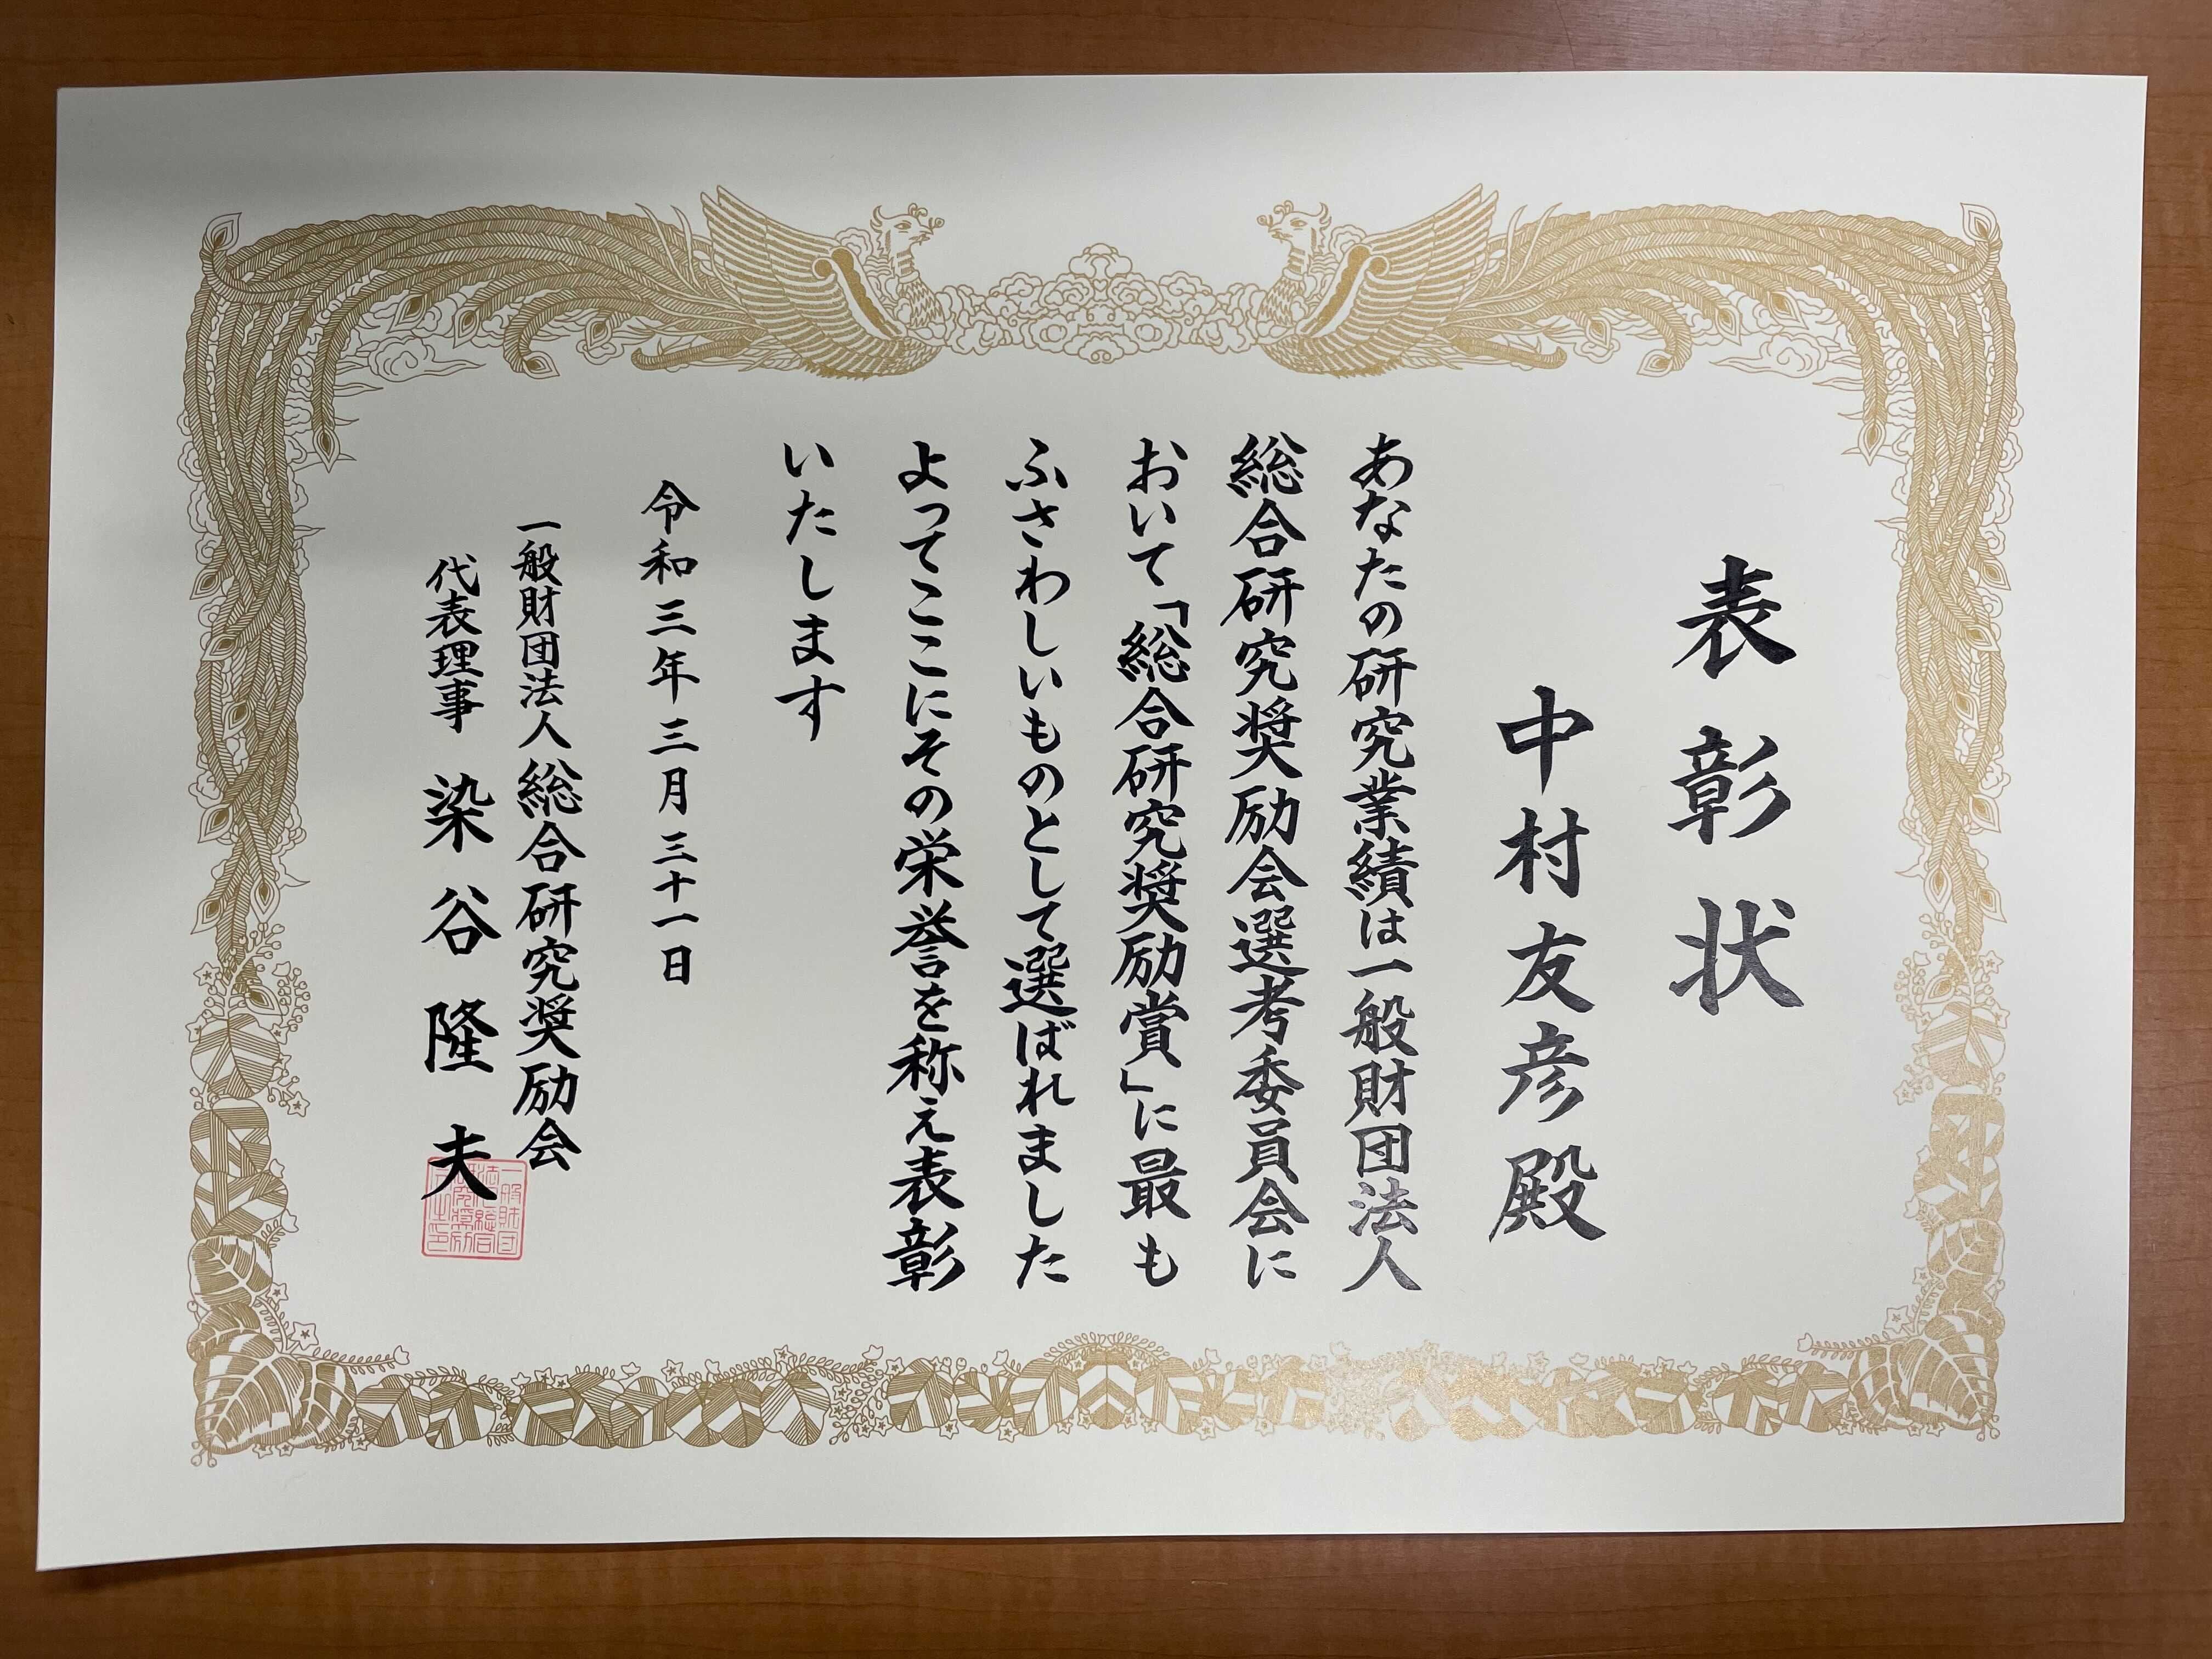 表彰状
中村友彦殿
あなたの研究業績は一般財団法人
総合研究奨励会選考委員会に
おいて「総合研究奨励賞」に最も
ふさわしいものとして選ばれました
よってここにその栄誉を称え表彰
いたします
令和三年三月三十一日
一般財団法人総合研究奨励会
代表理事 染谷隆夫